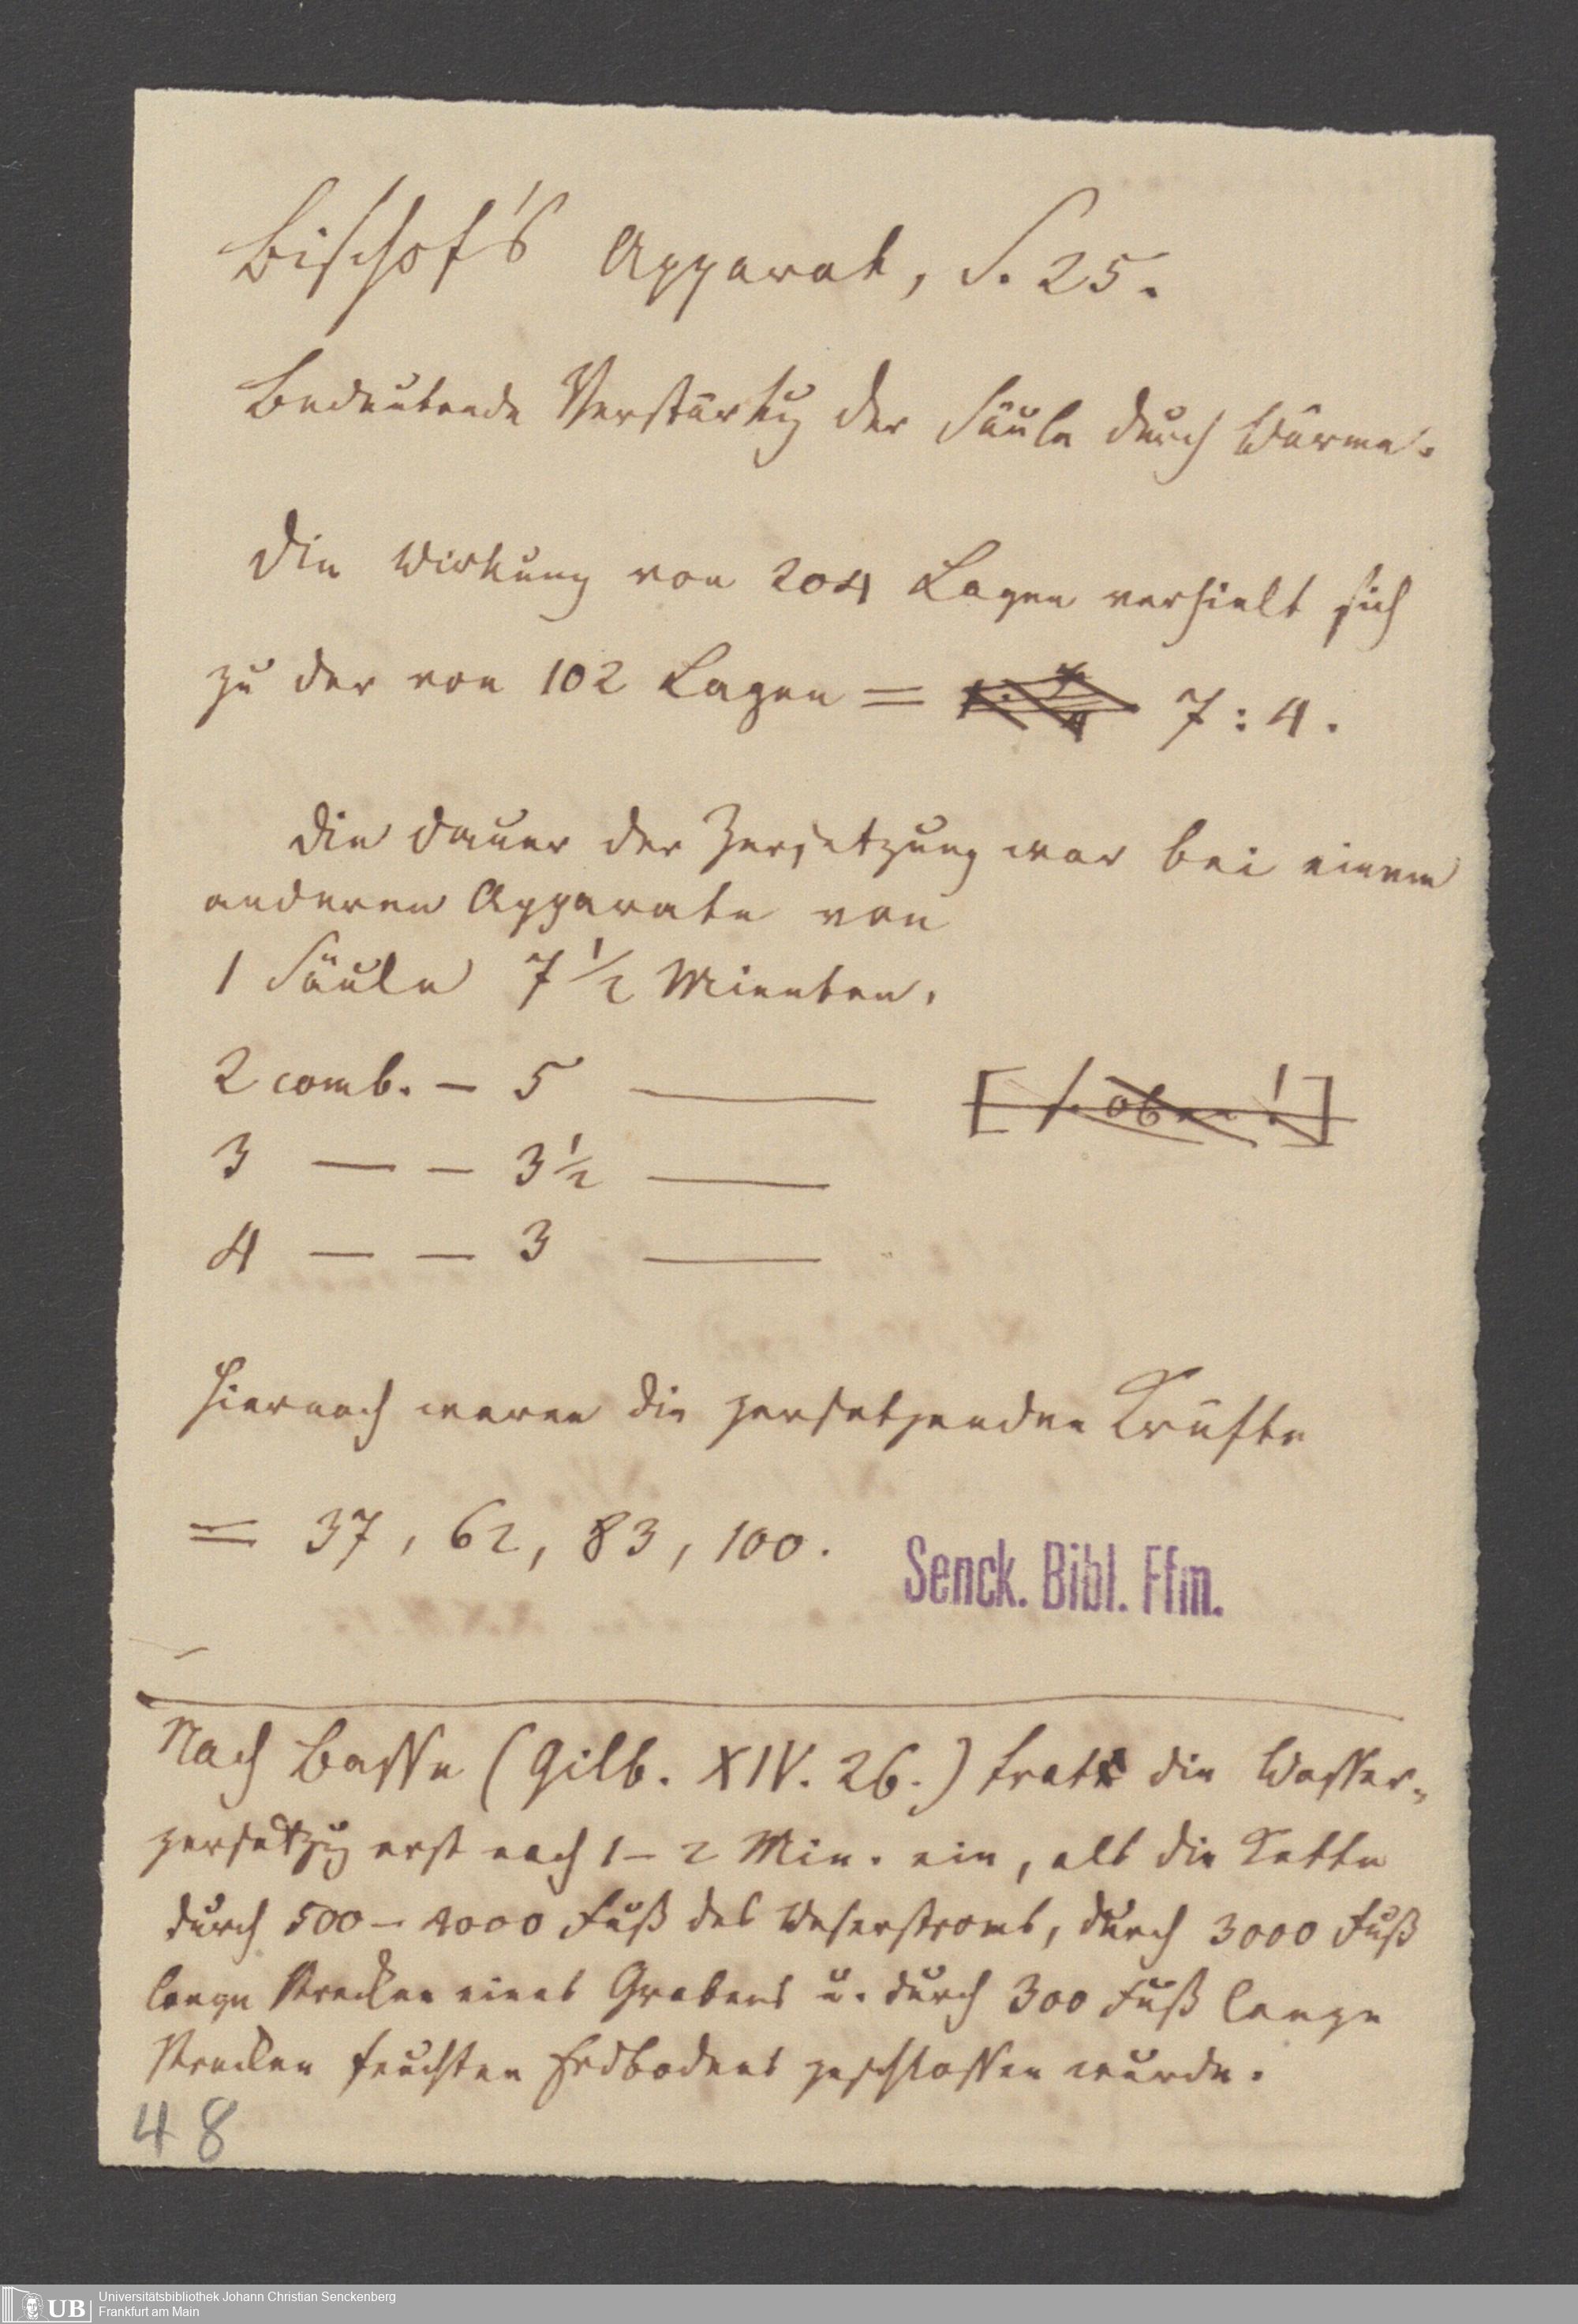 Bischof's Apparat, S. 25.
Bedeutende Verstärkug der Säule durch Wärme.
Die Wirkung von 204 Lagen verhielt sich
zu der von 102 Lagen = 7 : 4.
Die Dauer der Zersetzung war bei einem
anderen Apparate von
1 Säule 7 1/2 Minuten.
2 comb. — 5 ———
[s. oben!]
3 — — 3 1/2 ———
4 — — 3 ———
Hiernach waren die zersetzenden Kräfte
= 37, 62, 83, 100.
Senck. Bibl. Ffm.
Nach Basse (Gilb. XIV. 26.) trat die Wasser-
zersetzug erst nach 1 – 2 Min. ein, als die Kette
durch 500 – 4000 Fuß des Weserstroms, durch 3000 Fuß
lange Strecken eines Grabens u. durch 300 Fuß lange
Strecken feuchten Erdbodens geschlossen wurde.
48
UB
Universitätsbibliothek Johann Christian Senckenberg
Frankfurt am Main